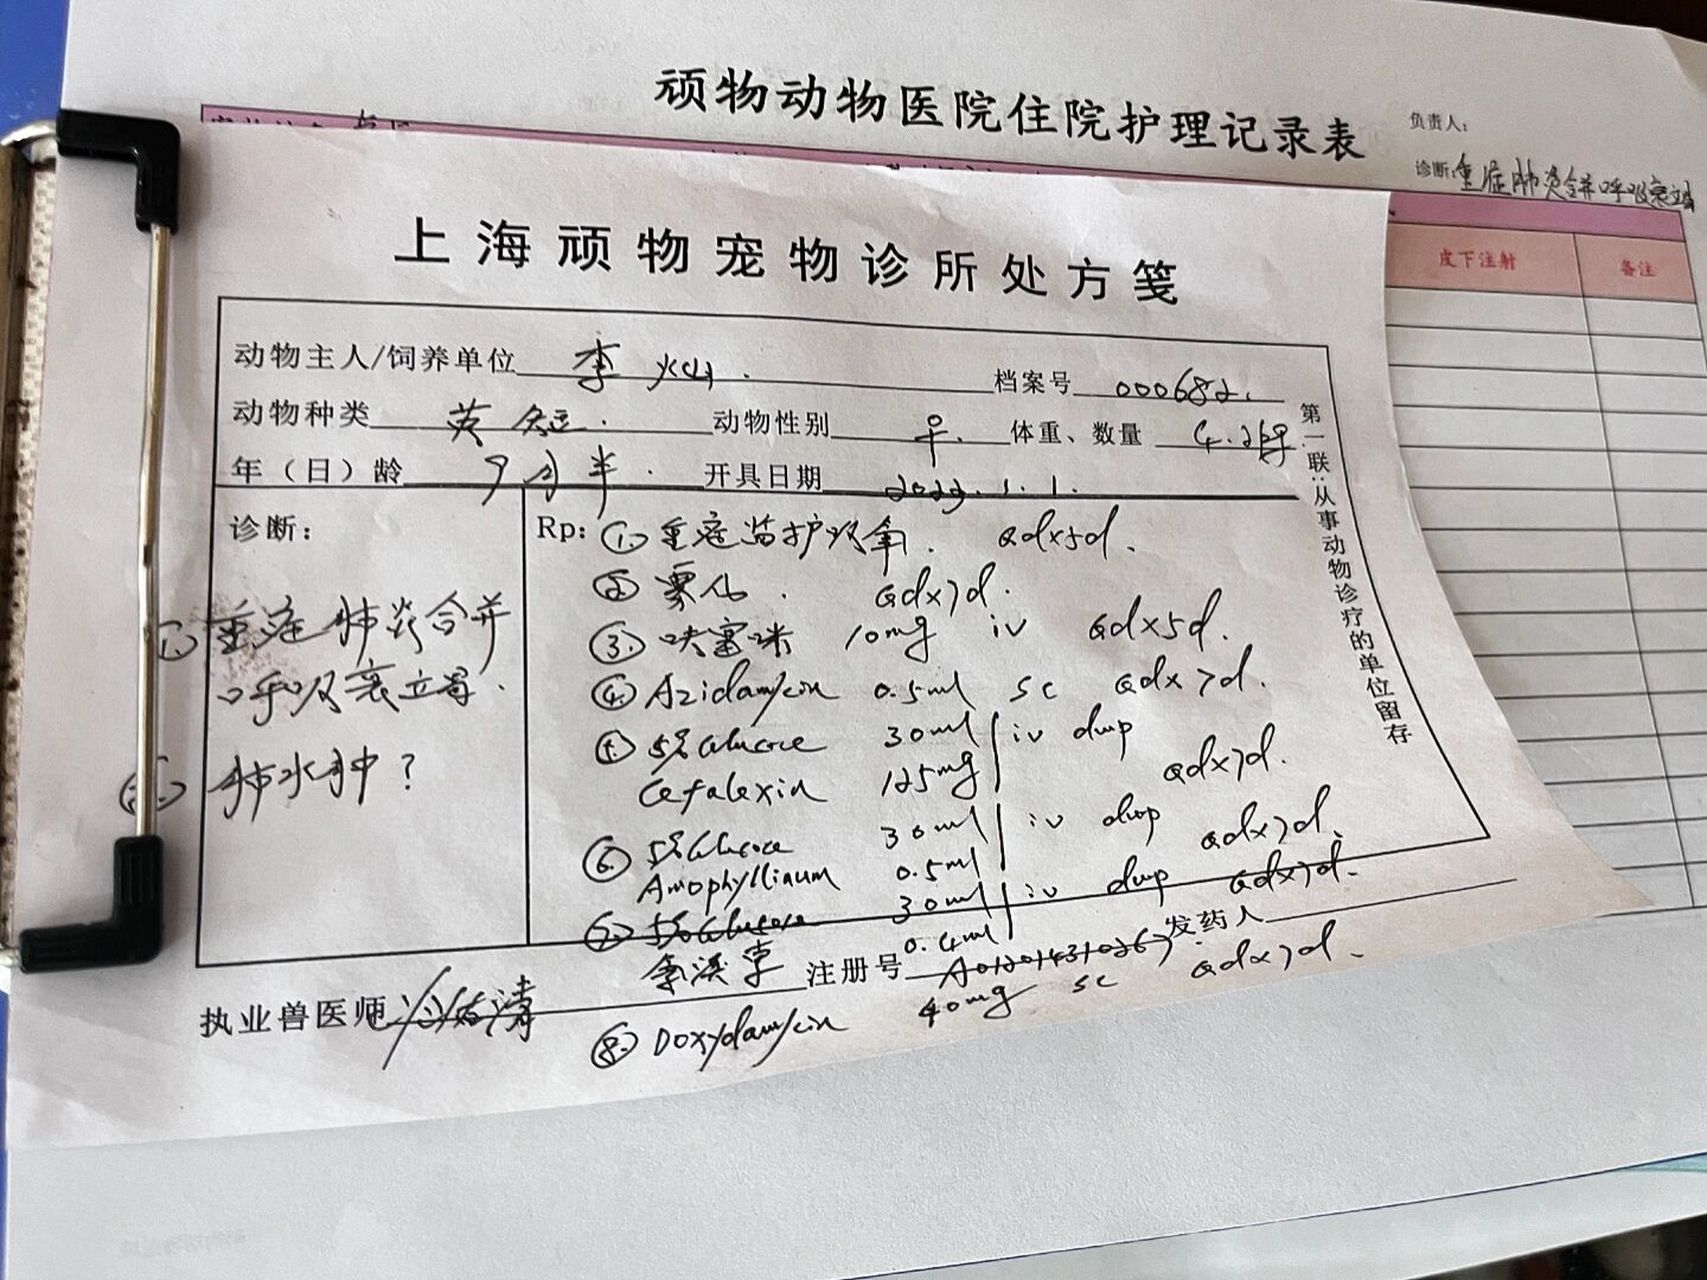 顽物动物医院住院护理记录表
负责人:
诊断:重症肺炎合并呼吸衰竭
皮下注射 备注
上海顽物宠物诊所处方笺
动物主人/饲养单位 李 档案号 000682.
动物种类 英短. 动物性别 早. 体重、数量 4.2kg
年（日）龄 9月半. 开具日期 2023.1.1.
第一联:从事动物诊疗的单位留存
诊断:
1. 重症肺炎合并
呼吸衰竭.
二. 肺水肿?
Rp: ①. 重症监护吸氧. Qdx5d.
② 雾化. Qdx7d.
③. 呋塞咪 10mg iv Qdx5d.
④. Azidamycin 0.5ml sc Qdx7d.
⑤ 5%Glucose 30ml iv dup
Cefalexin 125mg Qdx7d.
⑥. 5%Glucose 30ml iv dup
Amophyllinum 0.5ml Qdx7d.
⑦. 5%Glucose 30ml iv dup Qdx7d.
0.4ml
执业兽医师 注册号 发药人
⑧. Doxydamycin 40mg sc Qdx7d.